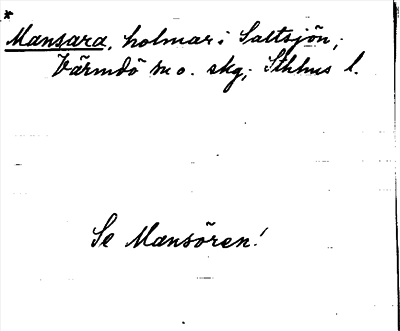 *
Mansara, holmar i Saltsjön,
Värmdö sn o. skg; Sthlms l.
Se Mansören!